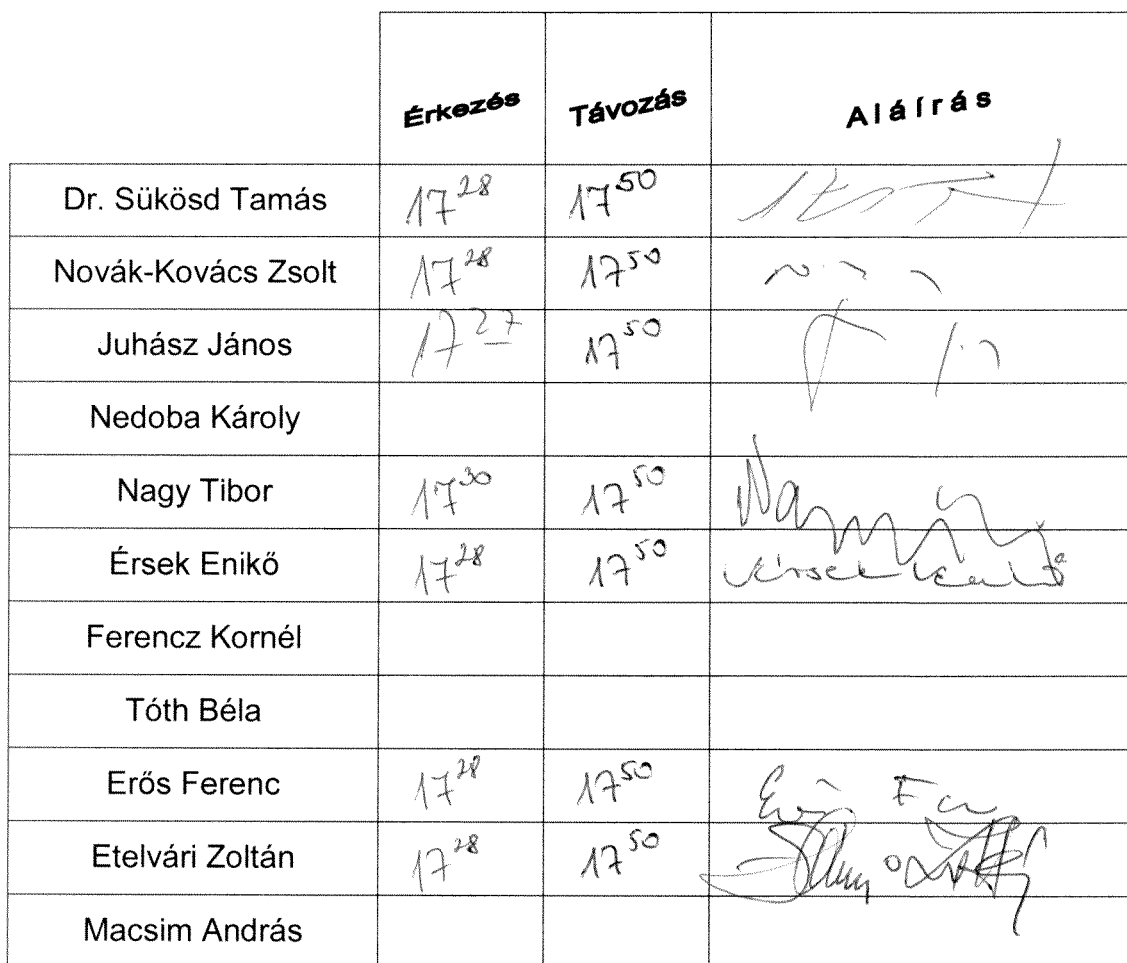 Érkezés Távozás Aláírás
Dr. Sükösd Tamás 17 28 17 50
Novák-Kovács Zsolt 17 28 17 50
Juhász János 17 27 17 50
Nedoba Károly
Nagy Tibor 17 30 17 50
Érsek Enikő 17 28 17 50 Érsek Enikő
Ferencz Kornél
Tóth Béla
Erős Ferenc 17 28 17 50
Etelvári Zoltán 17 28 17 50
Macsim András